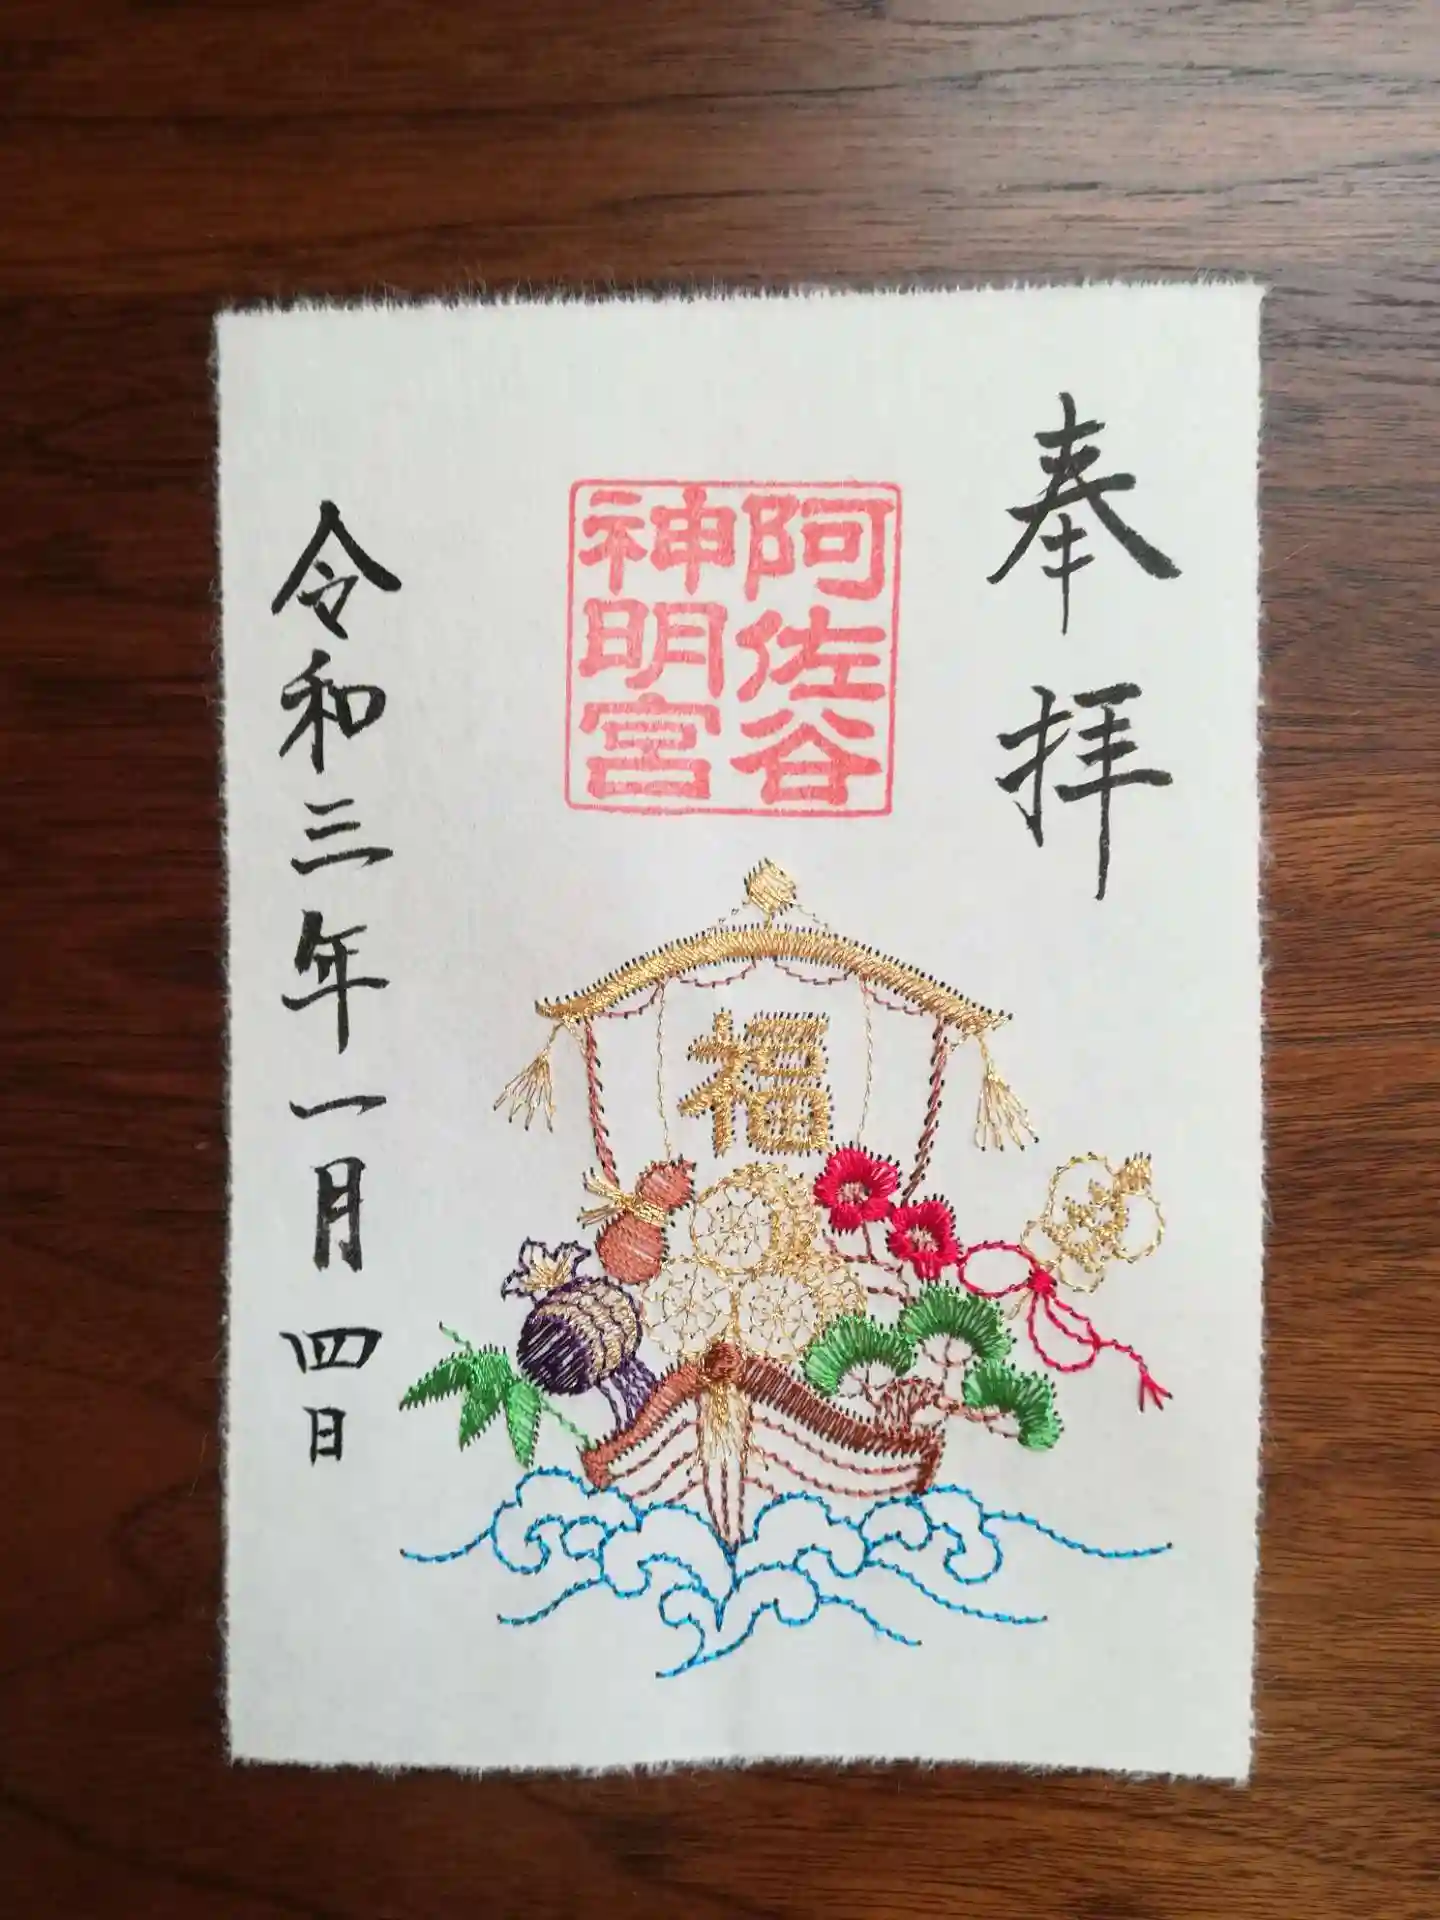 奉拝
阿佐谷
神明宮
福
令和三年一月四日